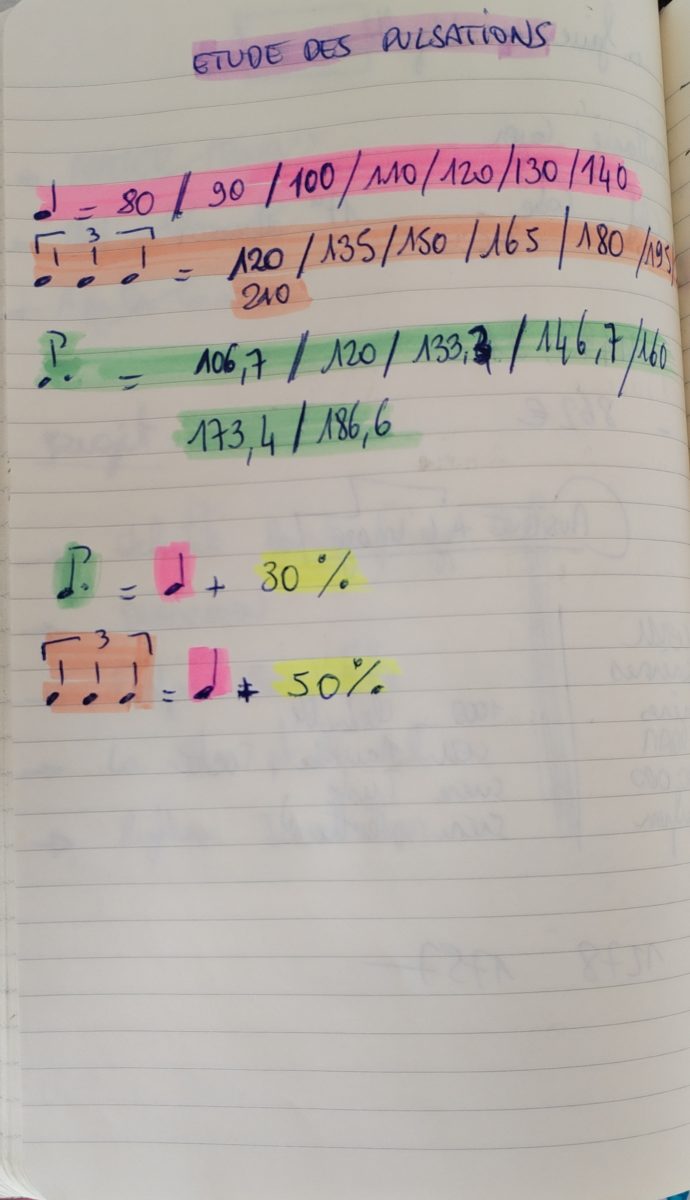 ETUDE DES PULSATIONS
♩ = 80 / 90 / 100 / 110 / 120 / 130 / 140
3
♩ ♩ ♩ = 120 / 135 / 150 / 165 / 180 / 195 /
210
♪. = 106,7 / 120 / 133,3 / 146,7 / 160
173,4 / 186,6
♪. = ♩ + 30 %
3
♩ ♩ ♩ = ♩ + 50%